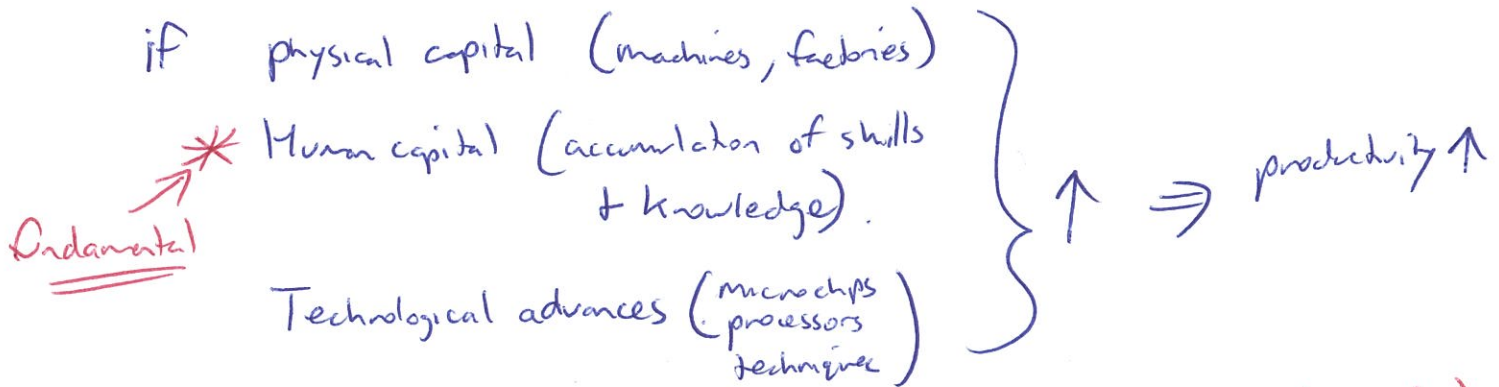 if physical capital (machines, factories)
* Human capital (accumulation of skills
+ knowledge).
↑ ⇒ productivity ↑
fundamental
Technological advances (microchips
processors
techniques)